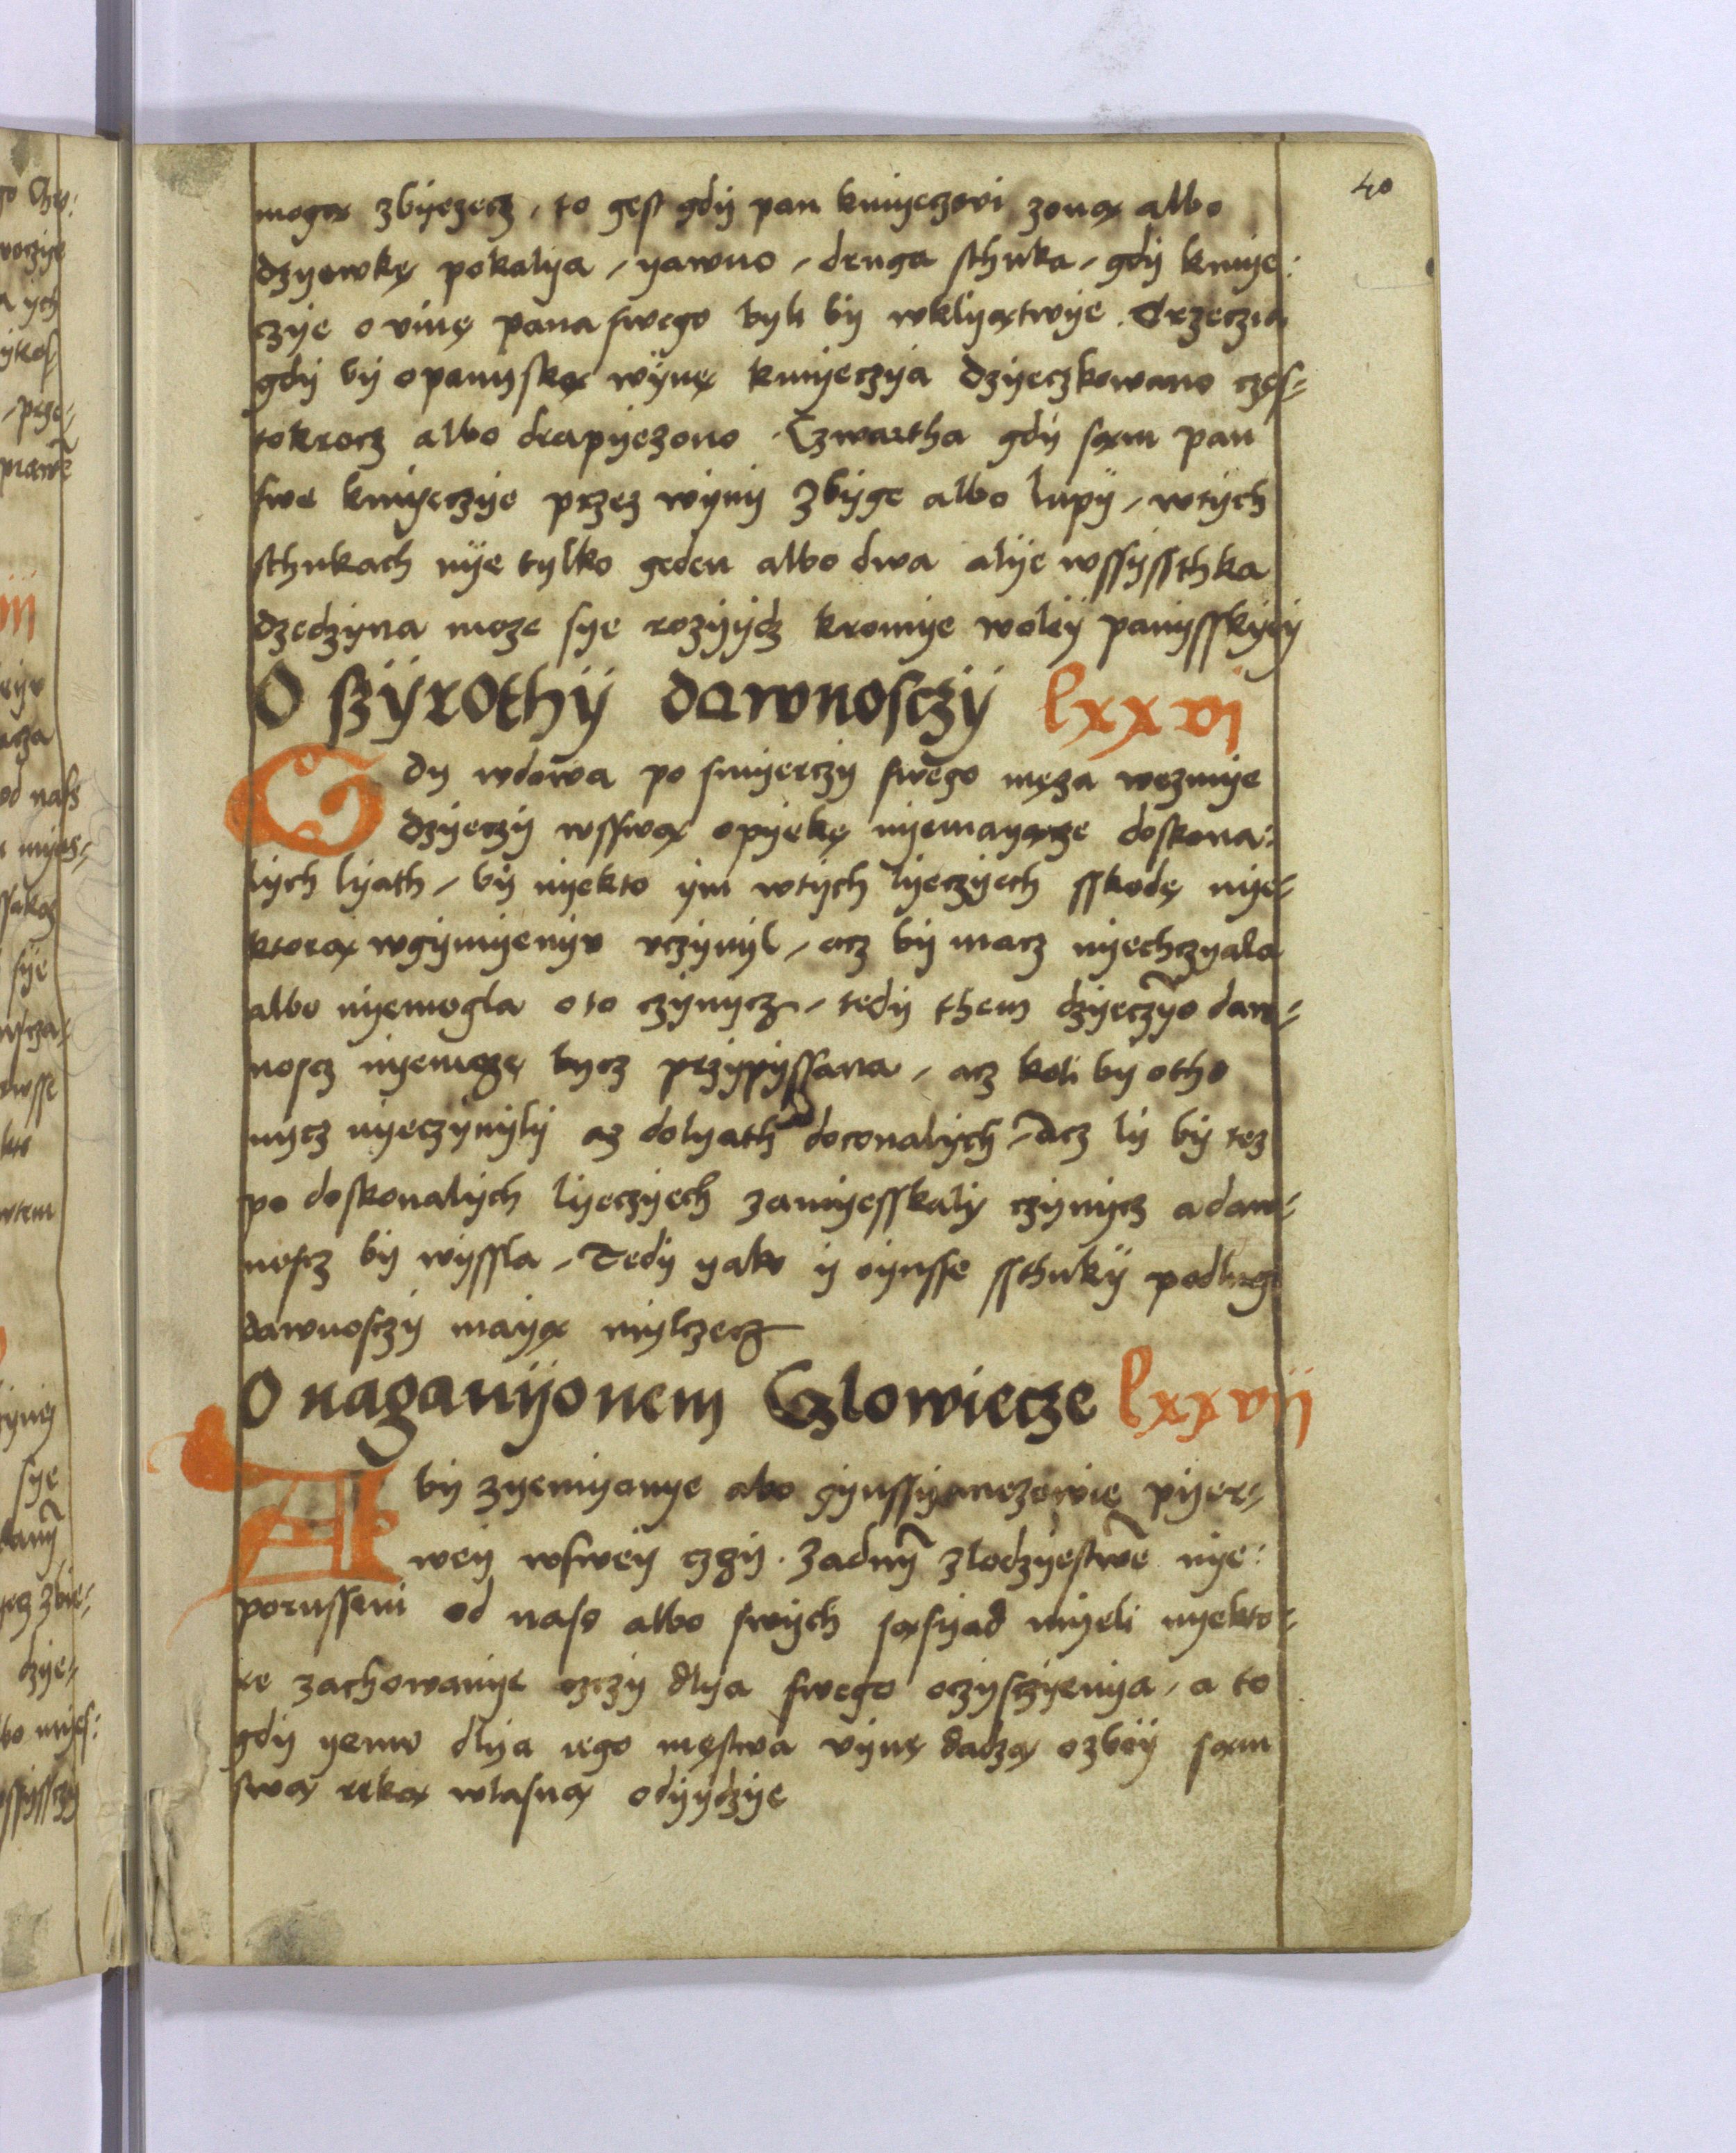 40
mogą zbyezecz, to gest gdÿ pan kmyeczovi zoną albo
dzyewkę pokalya, yawno, druga sthuka, gdÿ kmye:
czye o vinę pana swego byli bÿ wklyątwye. Trzeczia
gdÿ bÿ opanyską wÿnę kmyeczya dzyeczkowano częs⸗
tokrocz albo drapyezono. Czwartha gdÿ sąm pan
swe kmyeczye przez wÿnÿ zbÿge albo lupÿ, wtÿch
sthukach nÿe tylko geden albo dwa alÿe wssÿssthka
dzedzyna moze sye rozÿydz kromye wolÿ panÿsskyey
O sÿrothÿ dawnosczÿ lxxvi
Gdy wdowa po smyerczÿ swego męza wezmye
dzyeczÿ wsswą opyekę nyemayącze doskona:
lÿch lyath, bÿ nyekto ÿm wtÿch lyeczyech sskodę nye⸗
ktorą wgÿmyenyu vczynyl, acz bÿ macz nyechczyala
albo nyemogla o to czÿnycz, tedÿ them dzyeczyo daw⸗
noscz nyemoze bycz przypyssana, acz koli by otho
nycz nyeczynylÿ az dolyath doconalych, Acz lÿ bÿ tez
po doskonalÿch lyeczyech zamyesskalÿ czynycz a daw⸗
noscz bÿ wÿssla, Tedÿ yako ÿ vynsse sthukÿ podlug
dawnosczÿ mayą mylczecz
O naganÿonem Czlowiecze lxxvij
Abÿ zyemyanye abo gynssÿ mezowie pyer⸗
wey wswey czzÿ. zadnỹ zlodzyestwẽ nye:
porusseni od nass albo swych sąsyad myeli nyekto⸗
re zachowanye czczy dlya swego oczysczyenya, a to
gdÿ yemu dlya iego męstwa vynę dadzą ozbÿ sąm
swą ręką wlasną odyydzye